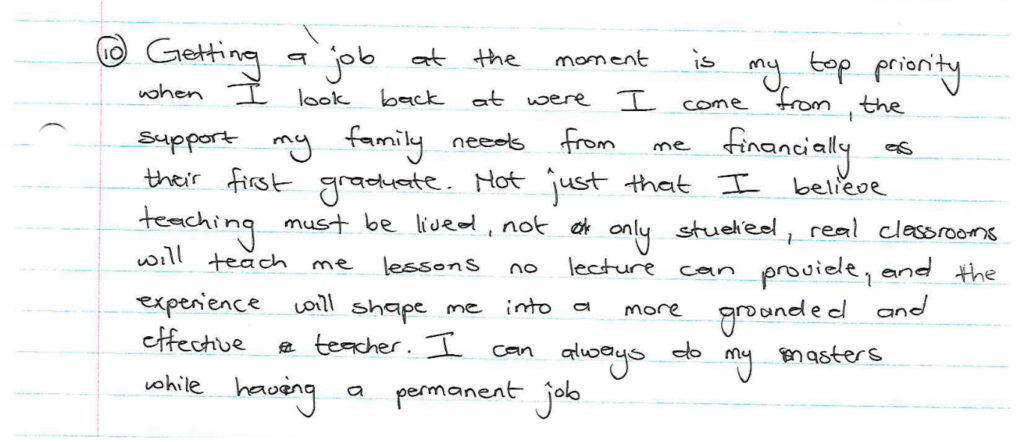 ⑩ Getting a job at the moment is my top priority
when I look back at were I come from, the
support my family needs from me financially as
their first graduate. Not just that I believe
teaching must be lived, not only studied, real classrooms
will teach me lessons no lecture can provide, and the
experience will shape me into a more grounded and
effective teacher. I can always do my masters
while having a permanent job